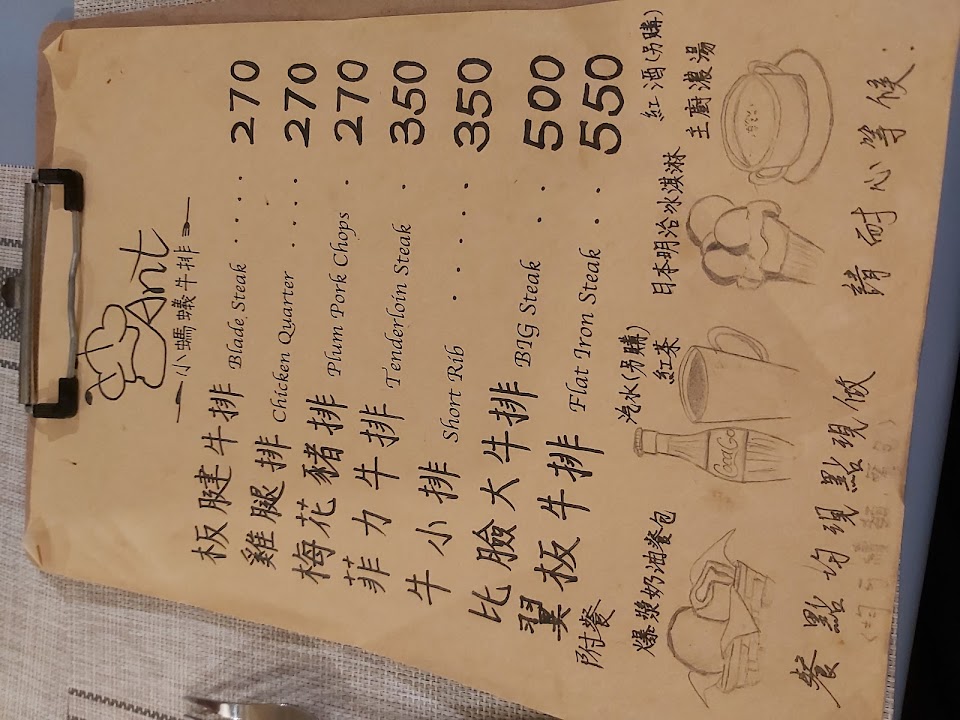 Ant
小螞蟻牛排
板腱牛排 Blade Steak .... 270
雞腿排 Chicken Quarter .... 270
梅花豬排 Plum Pork Chops . 270
菲力牛排 Tenderloin Steak . 350
牛小排 Short Rib ..... 350
比臉大牛排 BIG Steak ... 500
翼板牛排 Flat Iron Steak .. 550
附餐
爆漿奶油餐包
汽水(另購)
紅茶
日本明治冰淇淋
紅酒(另購)
主廚濃湯
CocaCo
餐點均現點現做 請耐心等候.